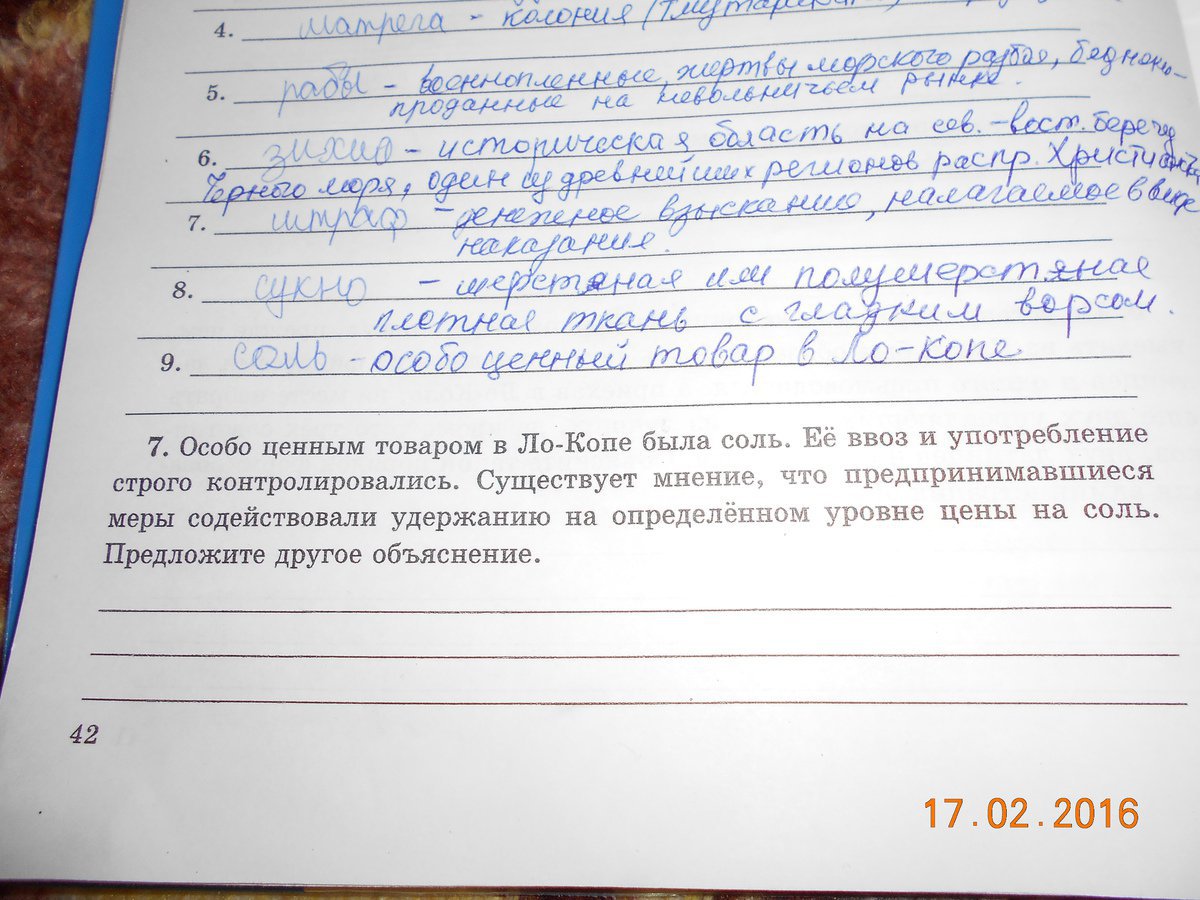 4. матрега - колония (Тмутаракань)
5. рабы - военнопленные, жертвы морского разбоя, бедняки-
проданные на невольничьем рынке.
6. зихия - историческая область на сев.-вост. берегу
Черного моря, один из древнейших регионов распр. Христианства
7. штраф - денежное взыскание, налагаемое в виде
наказания.
8. сукно - шерстяная или полушерстяная
плотная ткань с гладким ворсом.
9. соль - особо ценный товар в Ло-Копе
7. Особо ценным товаром в Ло-Копе была соль. Её ввоз и употребление
строго контролировались. Существует мнение, что предпринимавшиеся
меры содействовали удержанию на определённом уровне цены на соль.
Предложите другое объяснение.
42
17.02.2016